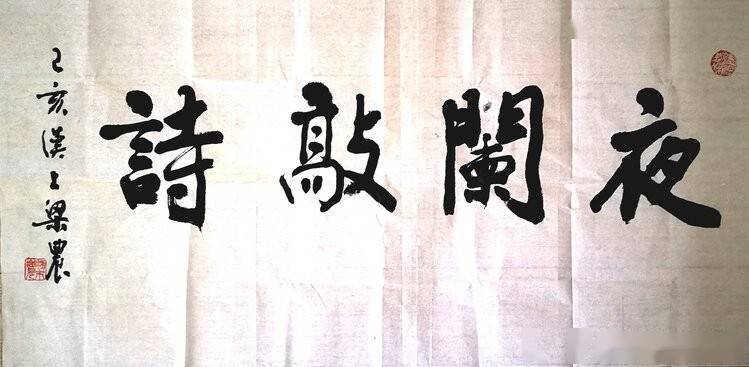 夜闌敲詩
己亥漢上梁農